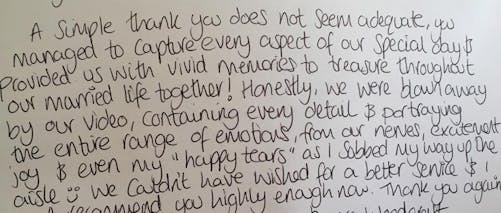 A Simple thank you does not seem adequate, you
managed to capture every aspect of our special day &
Provided us with vivid memories to treasure throughout
our married life together! Honestly, we were blown away
by our video, containing every detail & portraying
the entire range of emotions, from our nerves, excitement
joy & even my "happy tears" as I sobbed my way up the
aisle ☺ we couldn't have wished for a better service & I
recommend you highly enough now. Thank you again